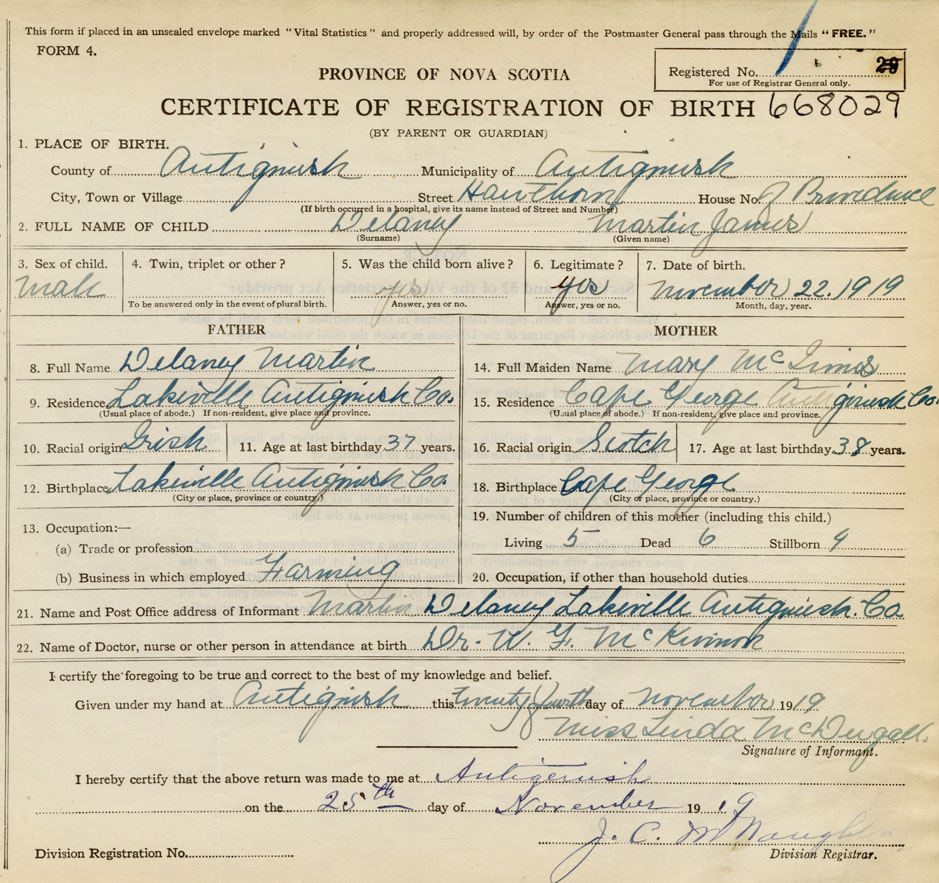 This form if placed in an unsealed envelope marked "Vital Statistics" and properly addressed will, by order of the Postmaster General pass through the Mails "FREE."
FORM 4.
Registered No.
For use of Registrar General only.
PROVINCE OF NOVA SCOTIA
CERTIFICATE OF REGISTRATION OF BIRTH 668029
(BY PARENT OR GUARDIAN)
1. PLACE OF BIRTH.
County of Antigonish Municipality of Antigonish
City, Town or Village Street Hawthorn House No.
(If birth occurred in a hospital, give its name instead of Street and Number)
2. FULL NAME OF CHILD Delaney Martin James
(Surname) (Given name)
3. Sex of child. 4. Twin, triplet or other? 5. Was the child born alive? 6. Legitimate? 7. Date of birth.
Male yes yes November 22. 1919
To be answered only in the event of plural birth. Answer, yes or no. Answer, yes or no. Month, day, year.
FATHER MOTHER
8. Full Name Delaney Martin 14. Full Maiden Name Mary
9. Residence Lakeville Antigonish Co. 15. Residence Cape George Antigonish Co.
(Usual place of abode.) If non-resident, give place and province. (Usual place of abode.) If non-resident, give place and province.
10. Racial origin Irish 11. Age at last birthday 37 years. 16. Racial origin Scotch 17. Age at last birthday 38 years.
12. Birthplace Lakeville Antigonish Co. 18. Birthplace Cape George
(City or place, province or country.) (City or place, province or country.)
13. Occupation:— 19. Number of children of this mother (including this child.)
(a) Trade or profession Living 5 Dead 6 Stillborn
(b) Business in which employed Farming 20. Occupation, if other than household duties
21. Name and Post Office address of Informant Martin Delaney Lakeville Antigonish Co.
22. Name of Doctor, nurse or other person in attendance at birth Dr. W. F. McKinnon
I certify the foregoing to be true and correct to the best of my knowledge and belief.
Given under my hand at Antigonish this twenty fourth day of November 1919
Miss Linda McDugall.
Signature of Informant.
I hereby certify that the above return was made to me at Antigonish
on the 25th day of November 1919
J. C. McNaughton
Division Registration No. Division Registrar.